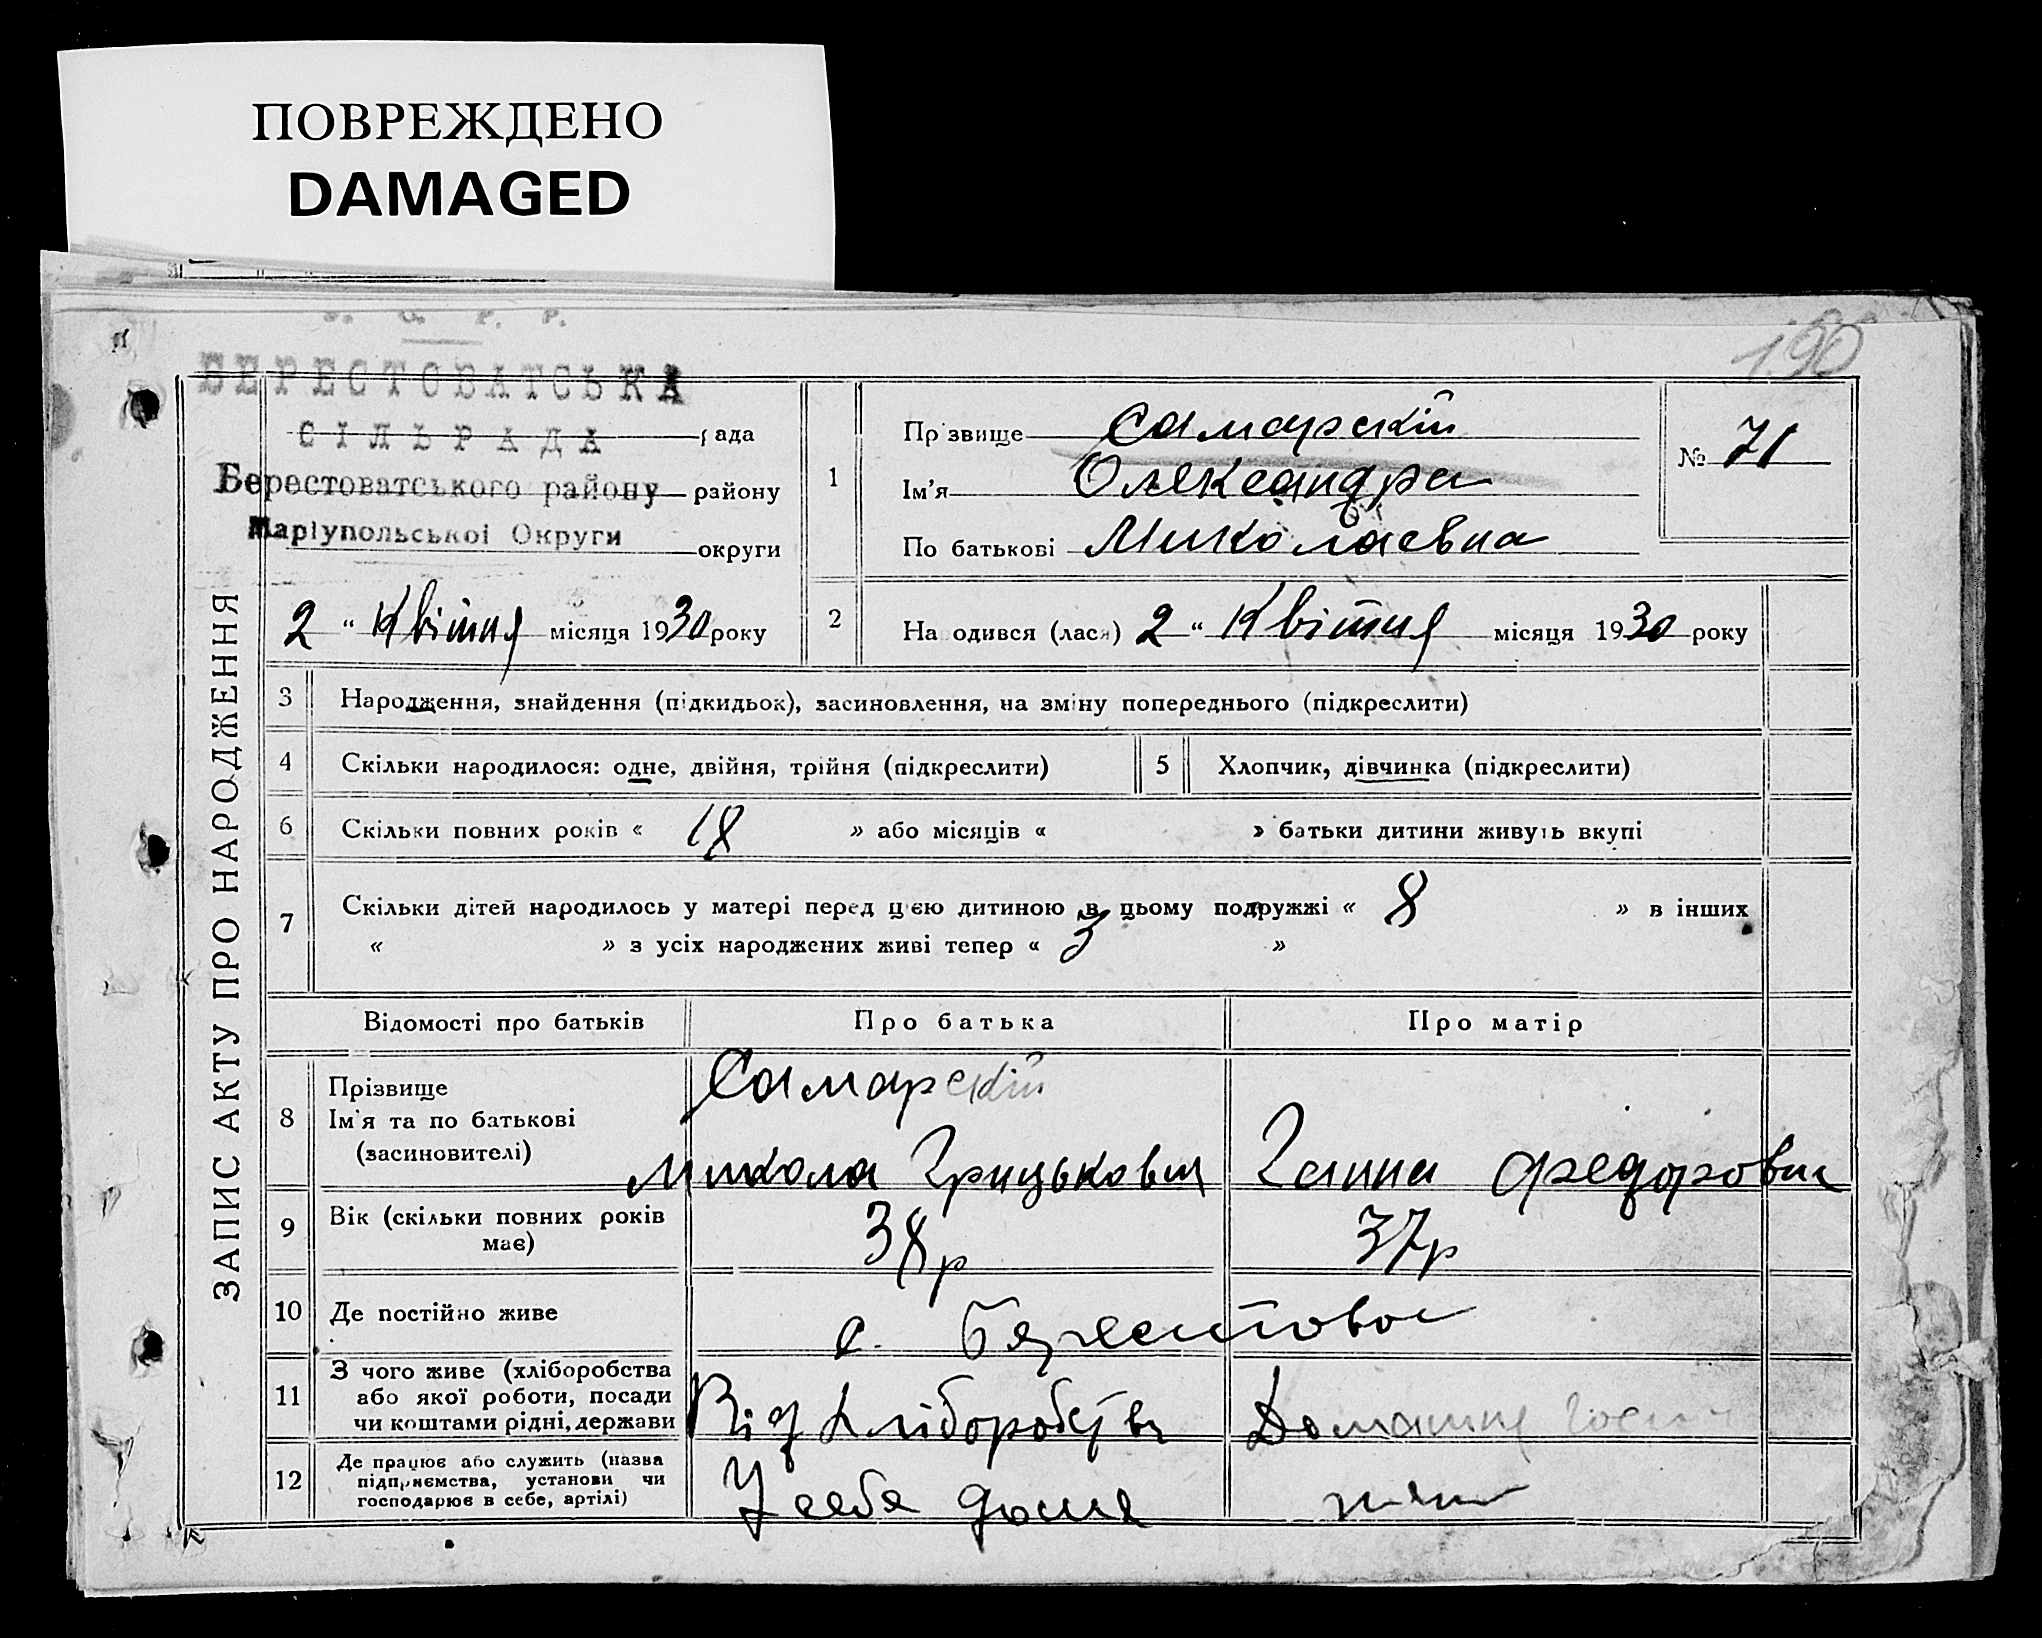 ПОВРЕЖДЕНО
DAMAGED
С. Р. Р.
190
БЕРЕСТОВАТСЬКА
СІЛЬРАДА рада
Берестоватського району району
Маріупольської Округи округи
2 " Квітня місяця 1930 року
ЗАПИС АКТУ ПРО НАРОДЖЕННЯ
1 Прізвище Самарский
Ім'я Олександра
По батькові Миколаевна
№ 71
2 Народився (лася) 2 " Квітня місяця 1930 року
3 Народження, знайдення (підкидьок), засиновлення, на зміну попереднього (підкреслити)
4 Скільки народилося: одне, двійня, трійня (підкреслити)
5 Хлопчик, дівчинка (підкреслити)
6 Скільки повних років « 18 » або місяців « » батьки дитини живуть вкупі
7 Скільки дітей народилось у матері перед цією дитиною в цьому подружжі « 8 » в інших
« » з усіх народжених живі тепер « 3 »
Відомості про батьків Про батька Про матір
8 Прізвище
Ім'я та по батькові
(засиновителі)
Самарский
Микола Грицькович Ганна Федоровна
9 Вік (скільки повних років
має)
38р 37р
10 Де постійно живе с. Берестово
11 З чого живе (хліборобства
або якої роботи, посади
чи коштами рідні, держави
Від Хліборобств Домашня
12 Де працює або служить (назва
підприємства, установи чи
господарює в себе, артілі)
У себе дома